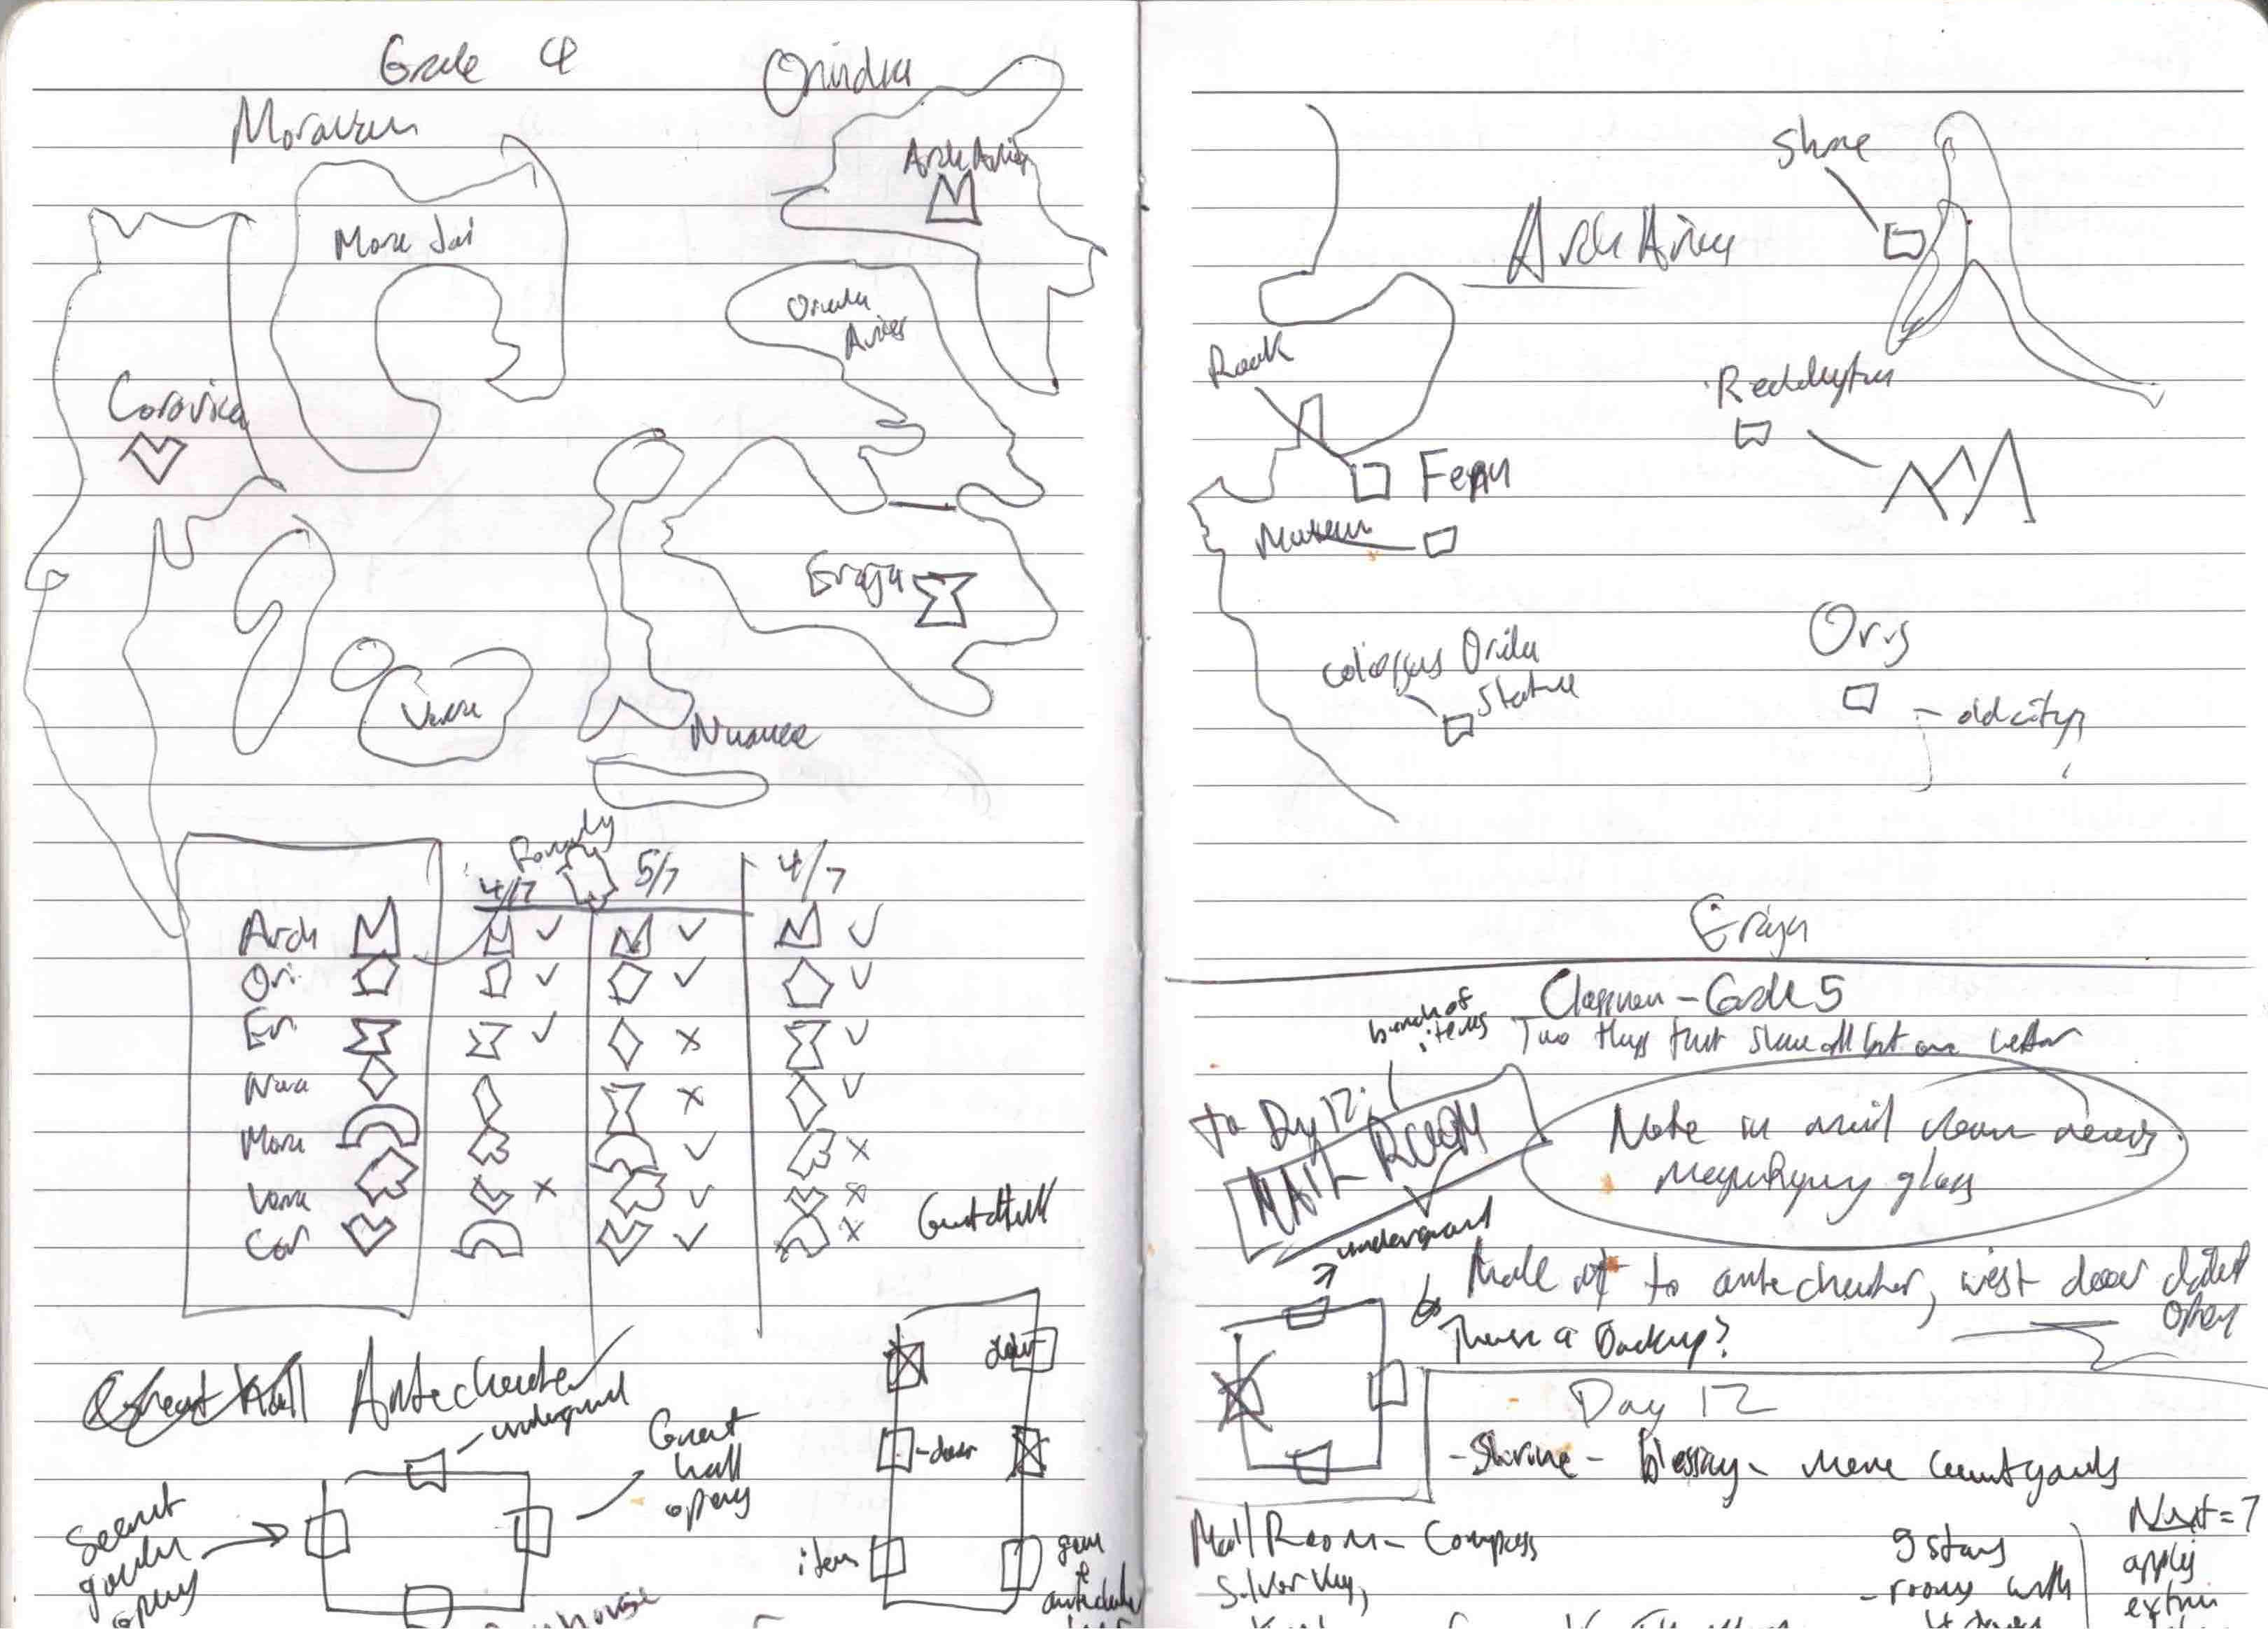 Grade 4
Orindia
Moravan
Arch Aries
Mora Jai
Orinda
Aries
Corarica
Eraja
Verra
Nuance
4/7
5/7
4/7
Arch
Ori
Er
Nua
Mora
Verra
Cor
Great Hall Antechamber
underground
Great
hall
opens
Secret
garden
opens
door
door
item
gem
Arch Aries
Shrine
Rook
Fenn
Museum
Reddington
Colossus Orinda
Statue
Oris
- old city
Eraja
Classroom - Grade 5
bunch of
items
Two things that share all but one letter
to Day 12:
MAIL ROOM
Note in mail room needs
magnifying glass
underground
Made it to antechamber, west door
open
There a backup?
Day 12
- Shrine - blessing - more courtyards
Mail Room - Compass
Silver key,
9 stars
- rooms with
Next = 7
apply
extra